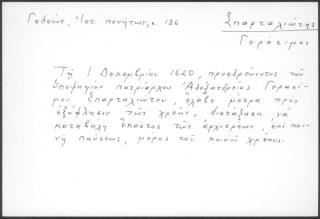 Γεδεών, Ἱστ. πενήτων, σ. 136
Σπαρταλιώτης
Γεράσιμος
Τῇ 1 Δεκεμβρίου 1620, προεδρεύοντος τοῦ
ὑποψηφίου πατριάρχου Ἀλεξανδρείας Γερασί-
μου Σπαρταλιώτου, ἔλαβε μέτρα πρὸς
ἐξόφλησιν τῶν χρεῶν, διατάξασα νὰ
καταβάλῃ ἕκαστος τῶν ἀρχιερέων, ἐπὶ ποι-
νῇ παύσεως, μέρος τοῦ κοινοῦ χρέους.